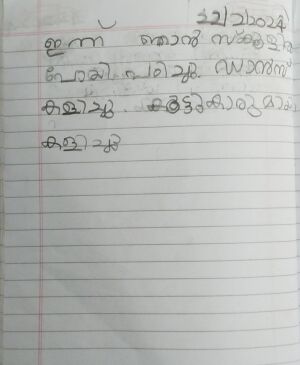 22/2/2024
ഇന്ന് ഞാൻ സ്കൂളിൽ
പോയി പഠിച്ചു. ഡാൻസ്
കളിച്ചു. കൂട്ടുകാരുമായി
കളിച്ചു